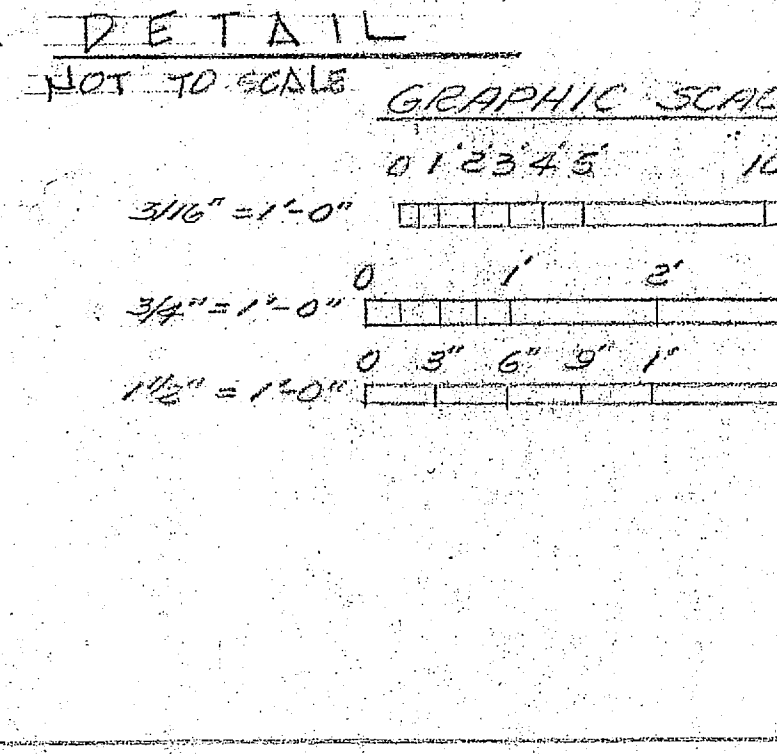 DETAIL
NOT TO SCALE
GRAPHIC SCAL
0 1' 2' 3' 4' 5' 10
3/16" = 1'-0"
0 1' 2'
3/4" = 1'-0"
0 3" 6" 9" 1'
1 1/2" = 1'-0"